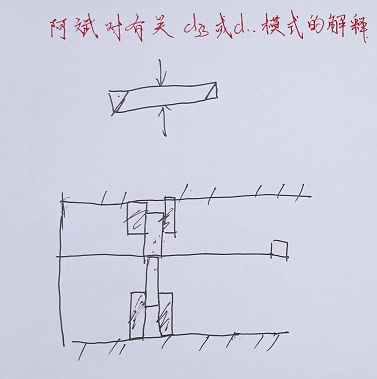 阿斌对有关d33或d..模式的解释